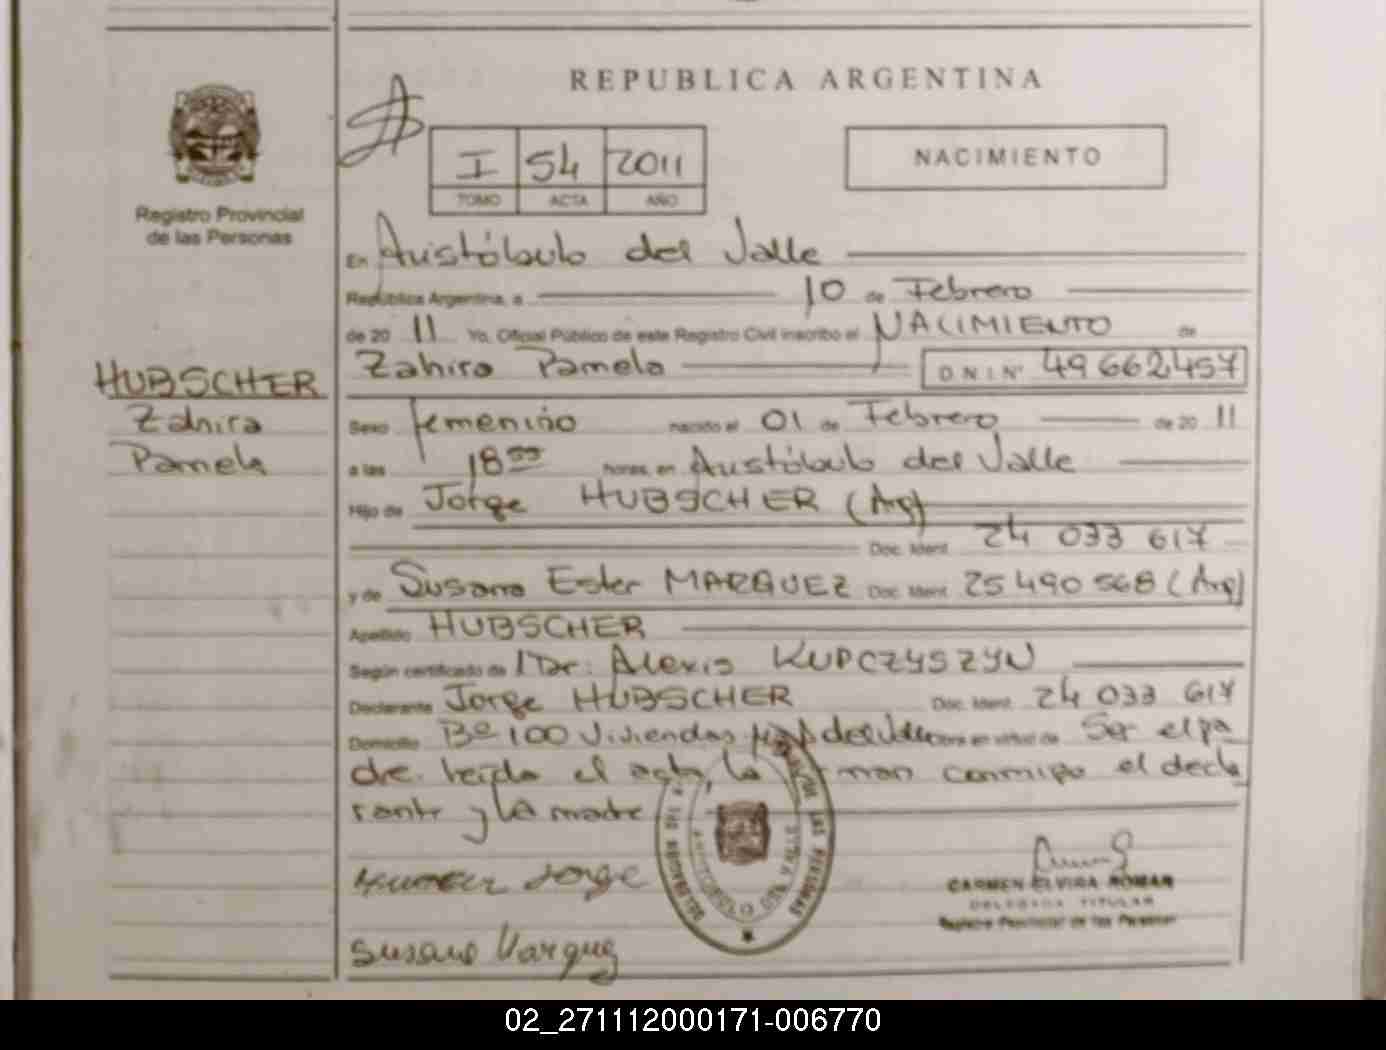 REPUBLICA ARGENTINA
I 54 2011
TOMO ACTA AÑO
NACIMIENTO
Registro Provincial
de las Personas
En Aristóbulo del Valle
República Argentina, a 10 de Febrero
de 20 11 Yo, Oficial Público de este Registro Civil inscribo el NACIMIENTO de
Zahira Pamela D N I Nº 49 662 457
HUBSCHER
Zahira
Pamela
Sexo femenino nacido el 01 de Febrero de 20 11
a las 18 horas, en Aristóbulo del Valle
Hijo de Jorge HUBSCHER (Arg)
Doc. Ident. 24 033 617
y de Susana Ester MARQUEZ Doc. Ident. 25 490 568 (Arg)
Apellido HUBSCHER
Según certificado de Dr: Alexis KUPCZYSZYN
Declarante Jorge HUBSCHER Doc. Ident. 24 033 617
Domicilio Bº 100 Viviendas del Valle en virtud de Ser el pa
dre. leída el acta, la man conmigo el decla
rante y la madre
Jorge
Susana Marquez
CARMEN ELVIRA ROMAN
DELEGADA TITULAR
Registro Provincial de las Personas
DE LAS PERSONAS
ARISTOBULO DEL VALLE
02_271112000171-006770